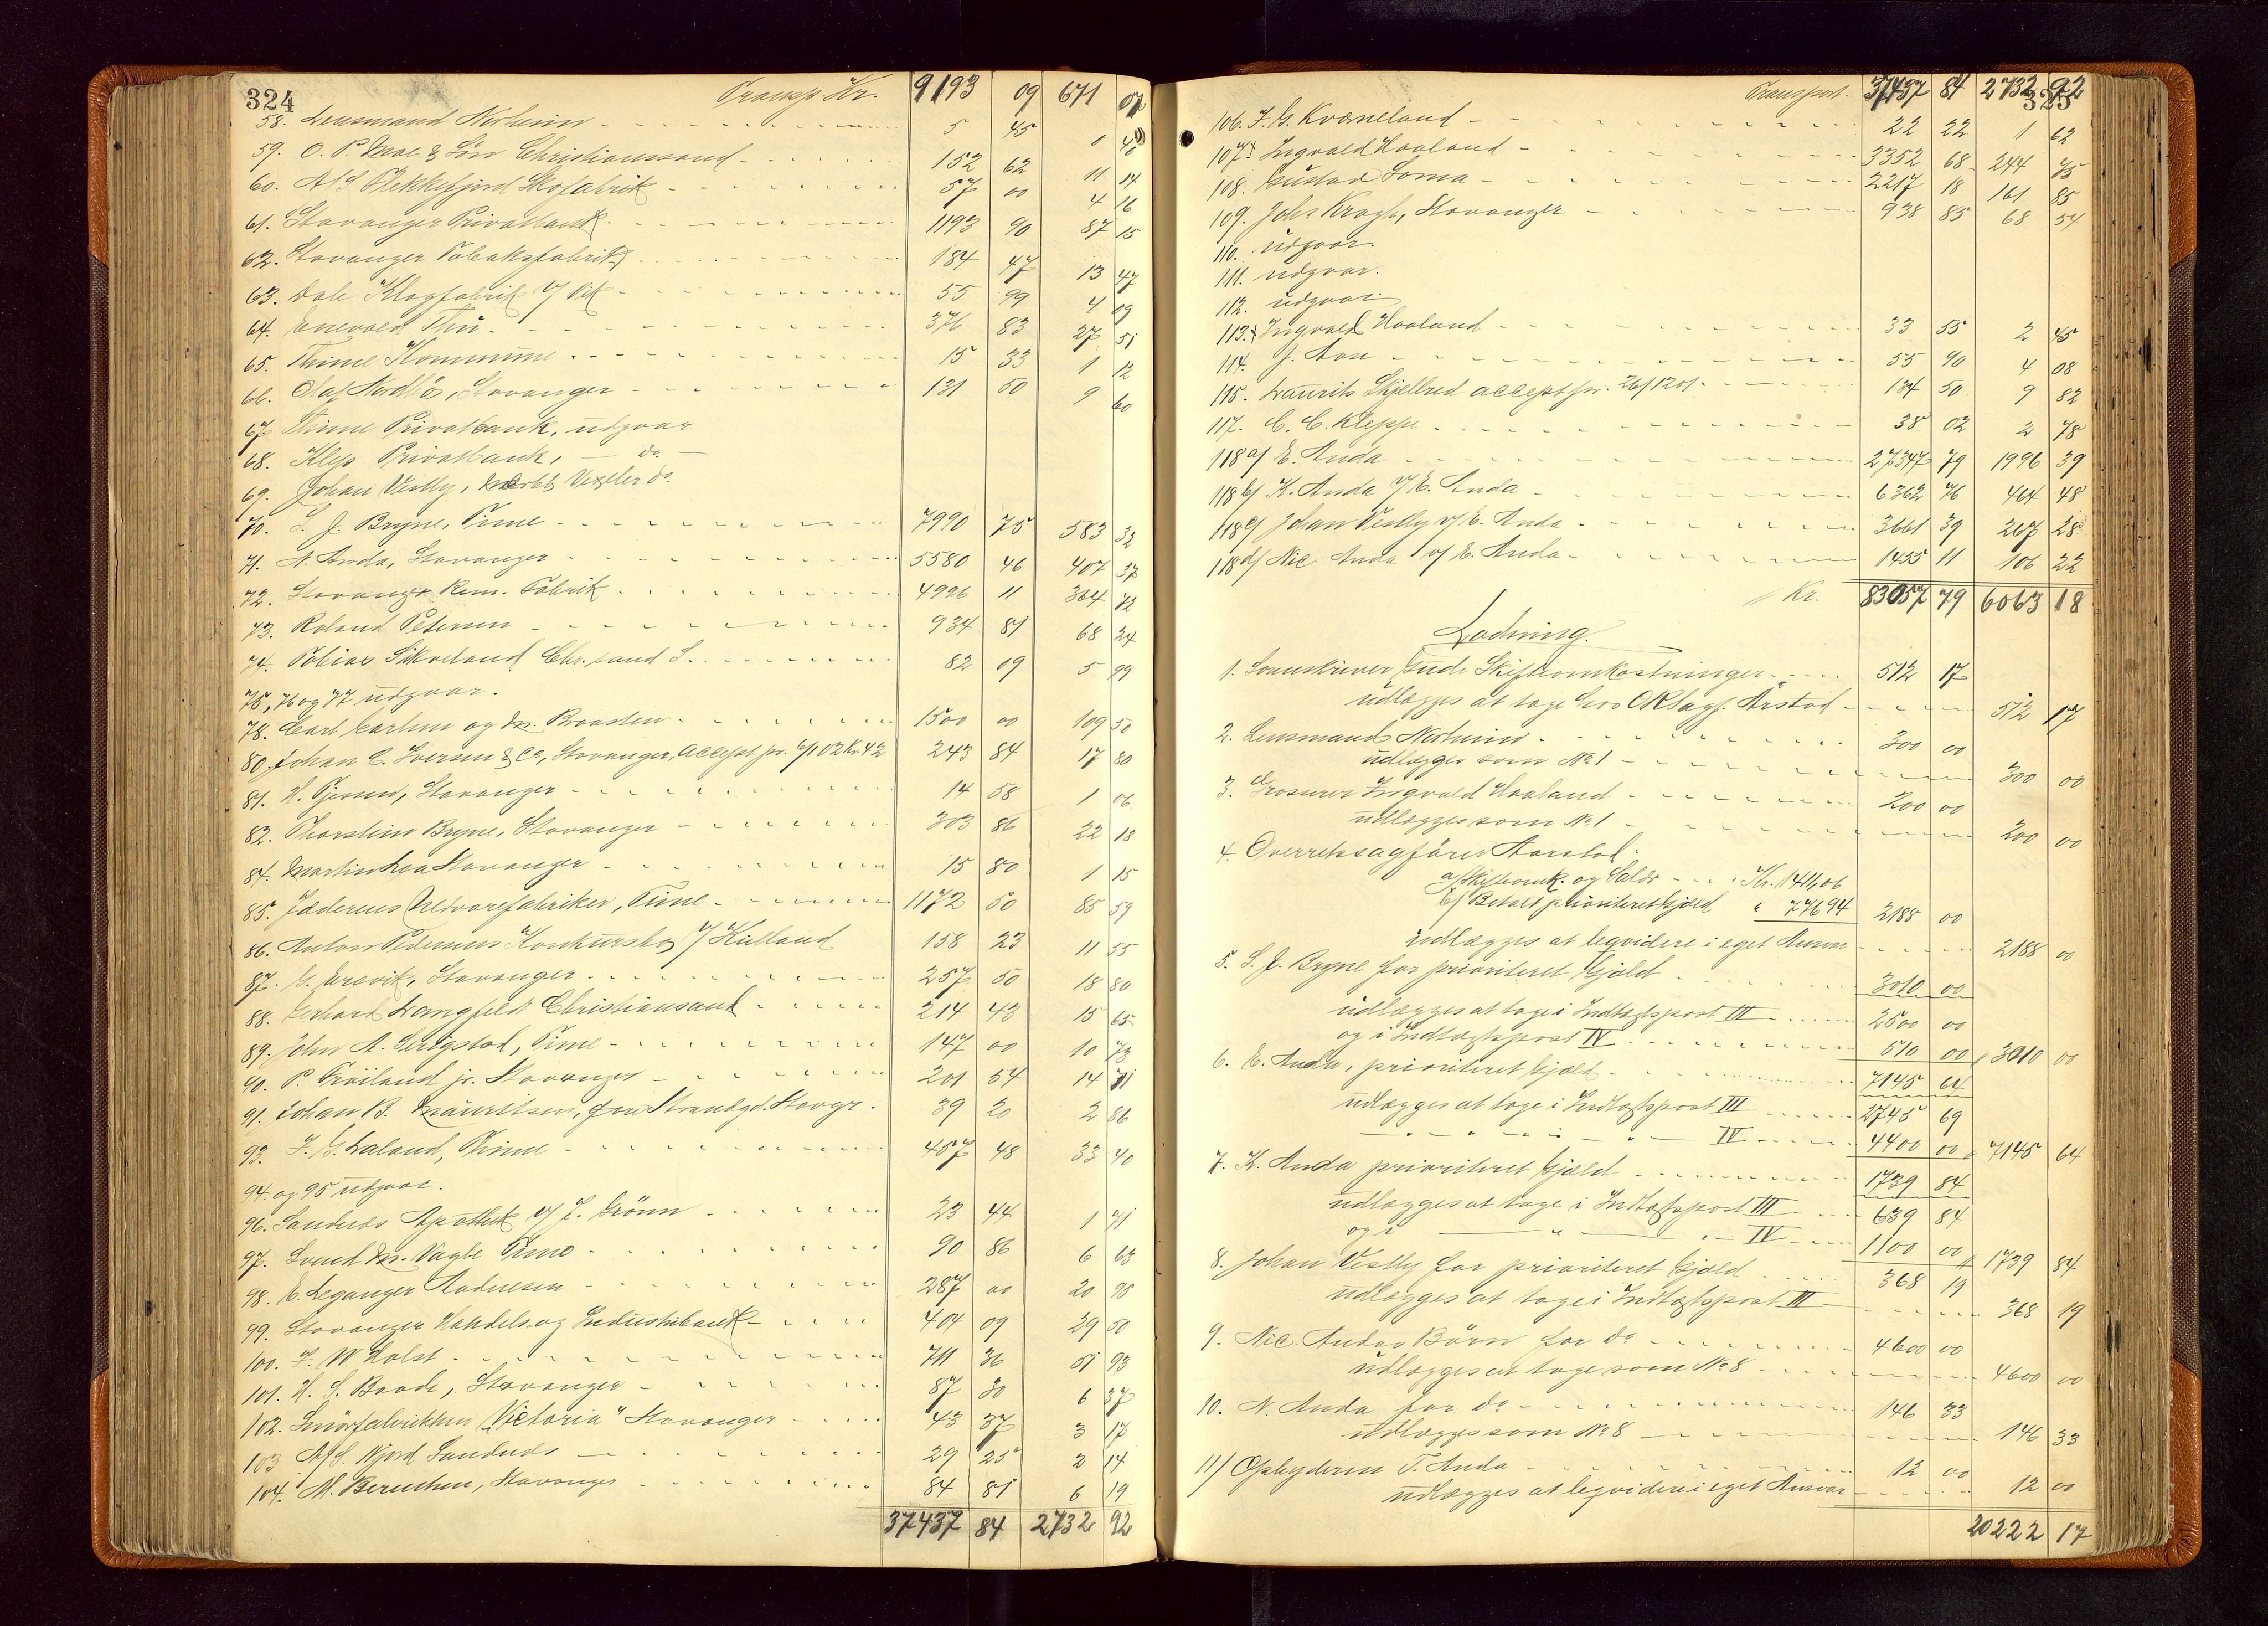 324
Transp Kr. 9193 09 671 07
58. Lensmand Norheim 5 45 0 40
59. O. P. Moe & Sön Christianssand 152 62 11 14
60. A/S Flekkefjord Skofabrik 57 00 4 16
61. Stavanger Privatbank 1193 90 87 15
62. Stavanger Tobaksfabrik 184 47 13 47
63. Dale Klagfabrik v/ Vik 55 99 4 09
64. Enevald Thu 376 83 27 51
65. Thime Kommune 15 33 1 12
66. Olaf Nordbö, Stavanger 131 50 9 60
67. Thime Privatbank, udgaar
68. Klep Privatbank, — do —
69. Johan Vestly, Vexler do
70. S. J. Bryne, Time 7990 75 583 32
71. N. Anda, Stavanger 5580 46 407 37
72. Stavanger Kem. Fabrik 4996 11 364 72
73. Roland Petersen 934 81 68 24
74. Tobias Sikveland Chr.sand S. 82 09 5 99
75, 76 og 77 udgaar.
78. Carl Carlsen og M. Braasten 1500 00 109 50
80. Johan C. Iversen & Co, Stavanger, accept pr. 6/1 02 Kr. 42 243 84 17 80
81. H. Tjensen, Stavanger 14 58 1 06
82. Thorstein Bryne, Stavanger 303 86 22 18
84. Martin Lea Stavanger 15 80 1 15
85. Jæderens Uldvarefabriker, Time 1172 50 85 59
86. Anton Pedersens Konkursbo v/ Hülland 158 23 11 55
87. G. Ersvik, Stavanger 257 50 18 80
88. Gerhard Langfeldt Christiansand 214 43 15 65
89. John A. Lerigstad, Time 147 00 10 73
90. P. Tröiland jr. Stavanger 201 54 14 71
91. Johan B. Mauritsen, Strandgd. Stavgr. 39 20 2 86
93. F. G. Laland, Thime 457 48 33 40
94. og 95 udgaar.
96. Sandnes Apothek v/ J. Grönn 23 44 1 71
97. Svend M. Vagle Time 90 86 6 63
98. E. Leganger Andresen 287 00 20 95
99. Stavanger Handels og Industribank 404 09 29 50
100. F. W. Holst 711 36 51 93
101. H. S. Baade, Stavanger 87 20 6 37
102. Smörfabrikken "Victoria" Stavanger 43 37 3 17
103 A/S. Njord Sandnes 29 25 2 14
104. M. Berentsen, Stavanger 84 81 6 19
37437 84 2732 92
325
Transport. 37437 84 2732 92
106. F. G. Kverneland 22 22 1 62
107. Ingvald Haaland 3352 68 244 75
108. Gustav Soma 2217 18 161 85
109. Johs Kragh, Stavanger 938 85 68 54
110. udgaar.
111. udgaar.
112. udgaar.
113. Ingvald Haaland 33 55 2 45
114. J. Aon 55 90 4 08
115. Laurits Skjelbred accept pr. 26/12 01. 134 50 9 82
117. C. C. Kleppe 38 02 2 78
118 a/ E. Anda 27347 79 1996 39
118 b/ K. Anda v/ E. Anda 6362 76 464 48
118 c/ Johan Vestly v/ E. Anda 3661 39 267 28
118 d/ Nic. Anda v/ E. Anda 1455 11 106 22
Kr. 83057 79 6063 18
Lodning.
1. Sorenskriver Gude Skifteomkostninger 512 17
udlægges at tage hos ORsagf. Årstad 512 17
2. Lensmand Norheim 300 00
udlægges som No 1 300 00
3. Grosserer Ingvald Haaland 200 00
udlægges som No 1 200 00
4. Overretssagförer Aarstad:
a/ Skifteomk. og Salær Kr. 1411,06
b/ Betalt prioriteret Gjæld " 776 94 2188 00
udlægges at leqvidere i eget Ansvar 2188 00
5. S. J. Bryne for prioriteret Gjæld 3010 00
udlægges at tage i Indtægtspost III 2500 00
og i Indtægtspost IV 510 00 3010 00
6. E. Anda, prioriteret Gjæld 7145 64
udlægges at tage i Indtægtspost III 2745 69
— " — " — " — " — IV 4400 00 7145 64
7. K. Anda prioriteret Gjæld 1739 84
udlægges at tage i Indtægtspost III 639 84
og i — " — " — IV 1100 00 1739 84
8. Johan Vestly for prioriteret Gjæld 368 19
udlægges at tage i Indtægtspost III 368 19
9. Nic. Andas Börn for do 4600 00
udlægges at tage som No 8 4600 00
10. N. Anda for do 146 33
udlægges som No 8 146 33
11/ Opbyderen T. Anda 12 00
udlægges at leqvidere i eget Ansvar 12 00
20222 17